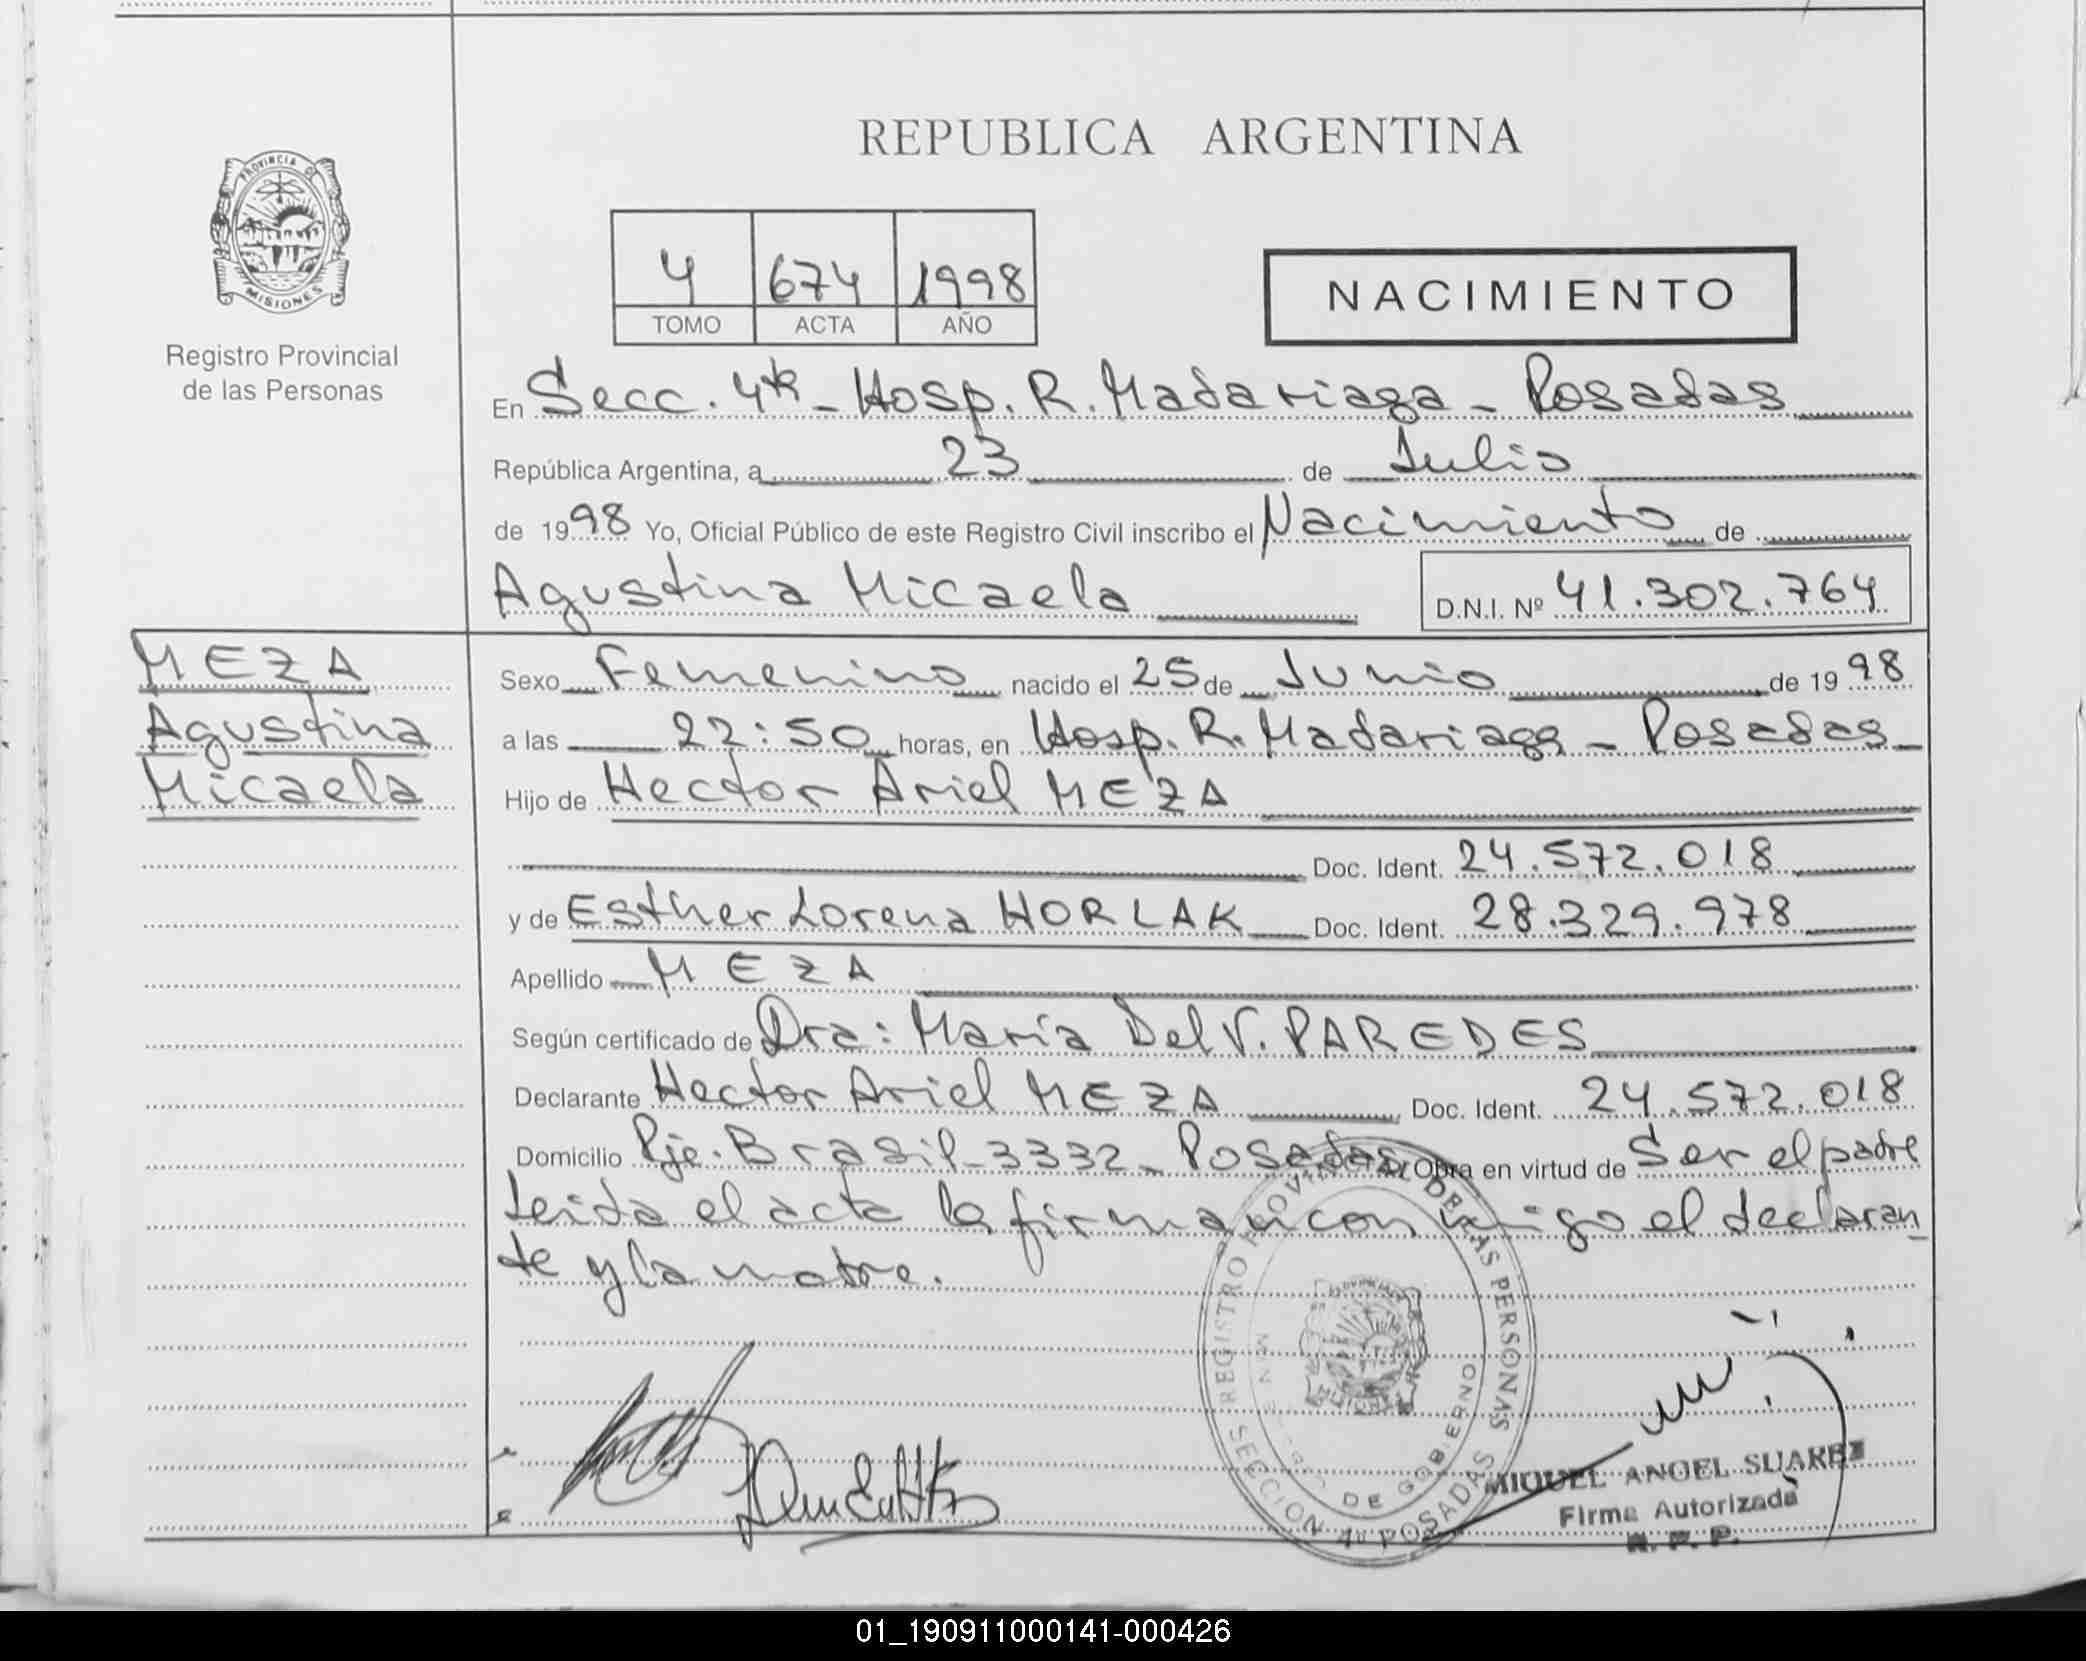 REPUBLICA ARGENTINA
PROVINCIA DE
MISIONES
Registro Provincial
de las Personas
4 674 1998
TOMO ACTA AÑO
NACIMIENTO
En Secc. 4ta - Hosp. R. Madariaga - Posadas
República Argentina, a 23 de Julio
de 1998 Yo, Oficial Público de este Registro Civil inscribo el Nacimiento de
Agustina Micaela D.N.I. Nº 41.302.764
MEZA
Agustina
Micaela
Sexo Femenino nacido el 25 de Junio de 1998
a las 22:50 horas, en Hosp. R. Madariaga - Posadas -
Hijo de Hector Ariel MEZA
Doc. Ident. 24.572.018
y de Esther Lorena HORLAK Doc. Ident. 28.329.978
Apellido MEZA
Según certificado de Dra: María Del V. PAREDES
Declarante Hector Ariel MEZA Doc. Ident. 24.572.018
Domicilio Pje. Brasil - 3332 - Posadas Obra en virtud de Ser el padre
Leida el acta la firman conmigo el declaran
te y la madre.
REGISTRO PROVINCIAL DE LAS PERSONAS
DE GOBIERNO
SECCION 4ta POSADAS
MIGUEL ANGEL SUAREZ
Firma Autorizada
R. P. P.
01_190911000141-000426